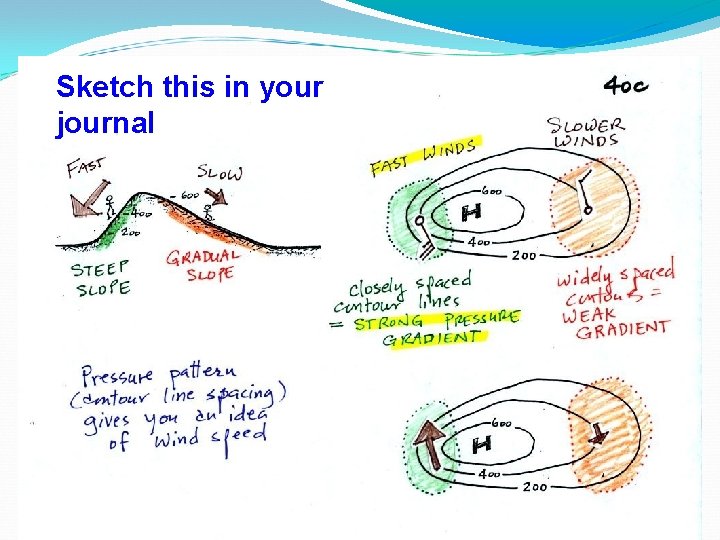 Sketch this in your
journal
40c
FAST
SLOW
600
400
200
STEEP
SLOPE
GRADUAL
SLOPE
FAST WINDS
SLOWER
WINDS
600
H
400
200
closely spaced
contour lines
= STRONG PRESSURE
GRADIENT
widely spaced
contours =
WEAK
GRADIENT
Pressure pattern
(contour line spacing)
gives you an idea
of wind speed
600
H
400
200